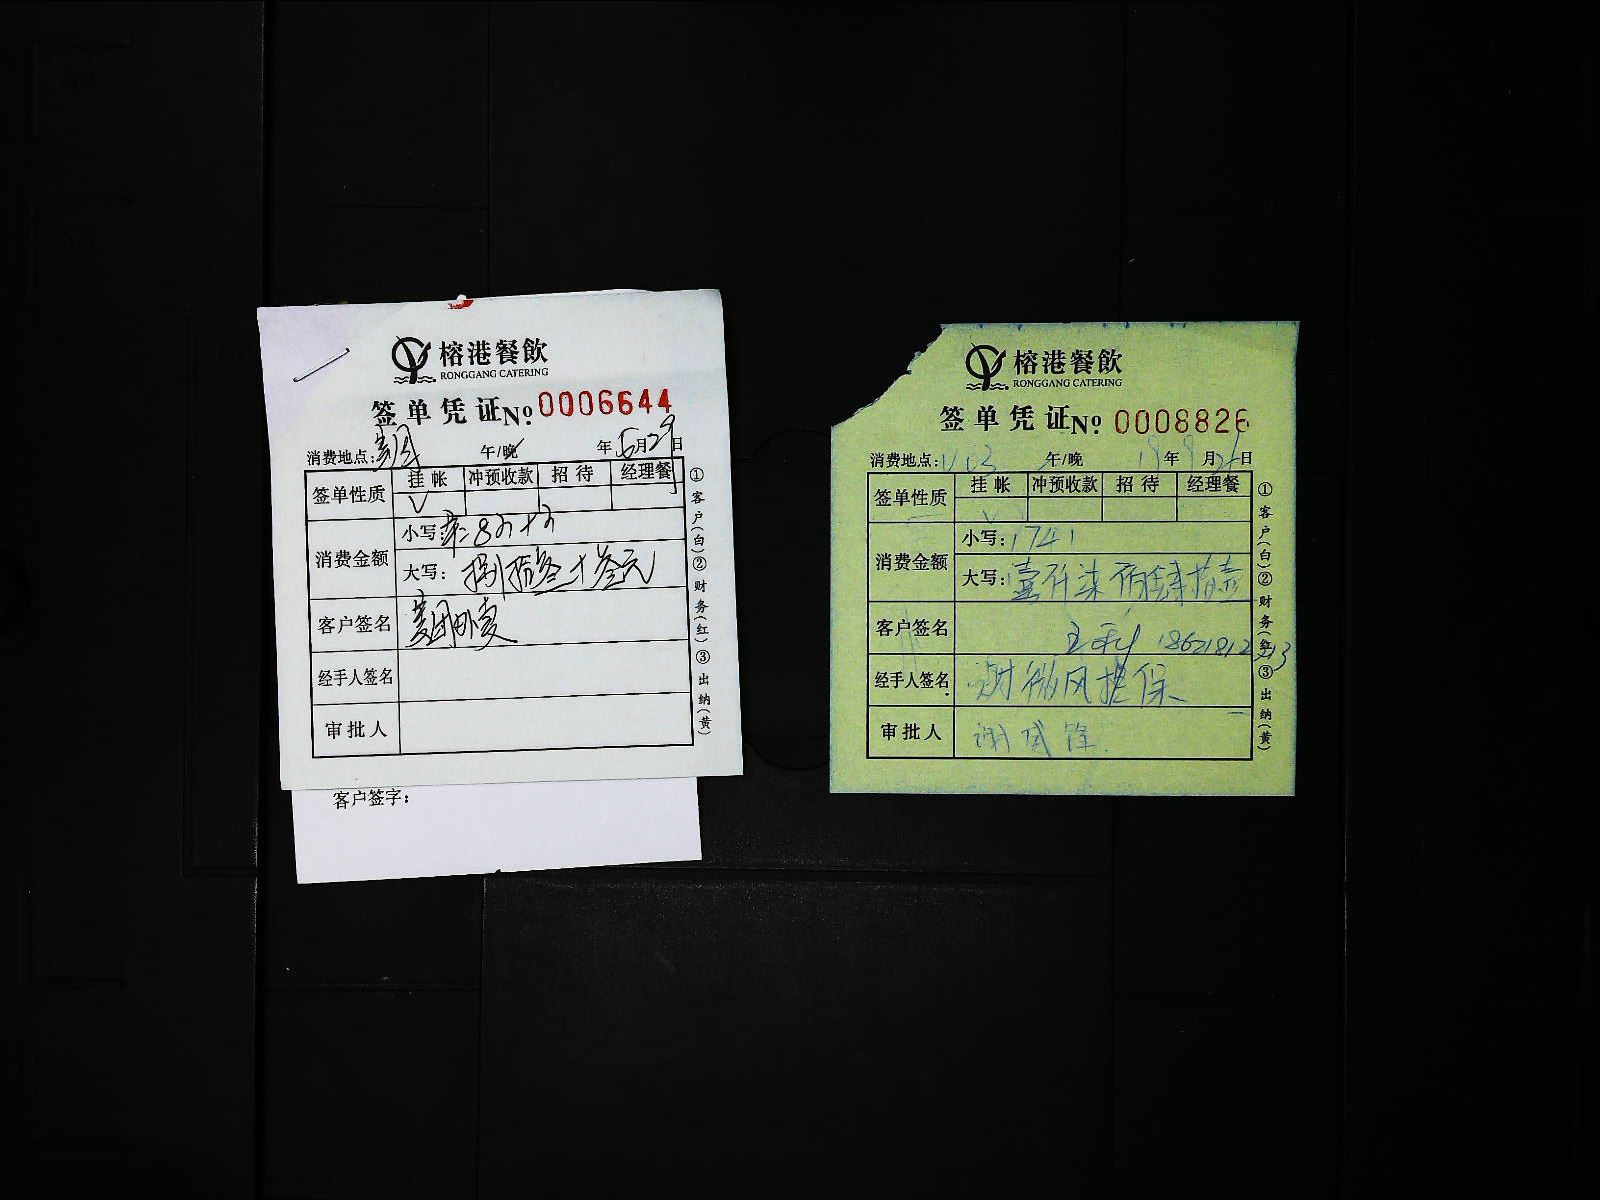 榕港餐飲
RONGGANG CATERING
签单凭证 No: 0006644
消费地点: 美团 午/晚 年 6月29日
签单性质 挂帐 冲预收款 招待 经理餐
√
消费金额 小写:
大写: 捌拾叁元
客户签名 美团外卖
经手人签名
审批人
①客户(白)②财务(红)③出纳(黄)
客户签字:
榕港餐飲
RONGGANG CATERING
签单凭证 No: 0008826
消费地点: V03 午/晚 19年9月21日
签单性质 挂帐 冲预收款 招待 经理餐
√
消费金额 小写: 1741
大写: 壹仟柒佰肆拾壹
客户签名
经手人签名 谢微风担保
审批人
①客户(白)②财务(红)③出纳(黄)